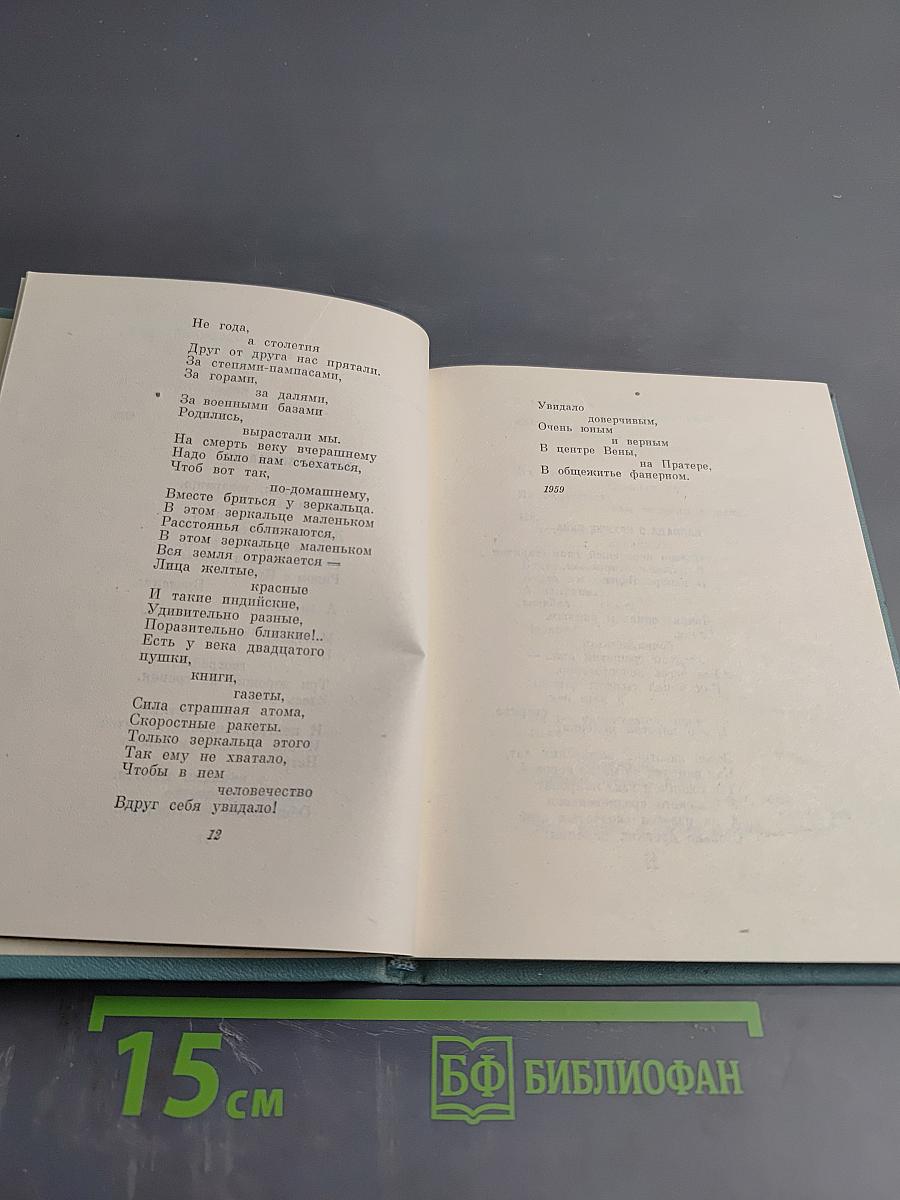 Не года,
а столетия
Друг от друга нас прятали.
За степями-пампасами,
За горами,
за далями,
За военными базами
Родились,
вырастали мы.
На смерть веку вчерашнему
Надо было нам съехаться,
Чтоб вот так,
по-домашнему,
Вместе бриться у зеркальца.
В этом зеркальце маленьком
Расстоянья сближаются,
В этом зеркальце маленьком
Вся земля отражается —
Лица желтые,
красные
И такие индийские,
Удивительно разные,
Поразительно близкие!..
Есть у века двадцатого
пушки,
книги,
газеты,
Сила страшная атома,
Скоростные ракеты.
Только зеркальца этого
Так ему не хватало,
Чтобы в нем
человечество
Вдруг себя увидало!
12
Увидало
доверчивым,
Очень юным
и верным
В центре Вены,
на Пратере,
В общежитье фанерном.
1959
15 см
БФ БИБЛИОФАН